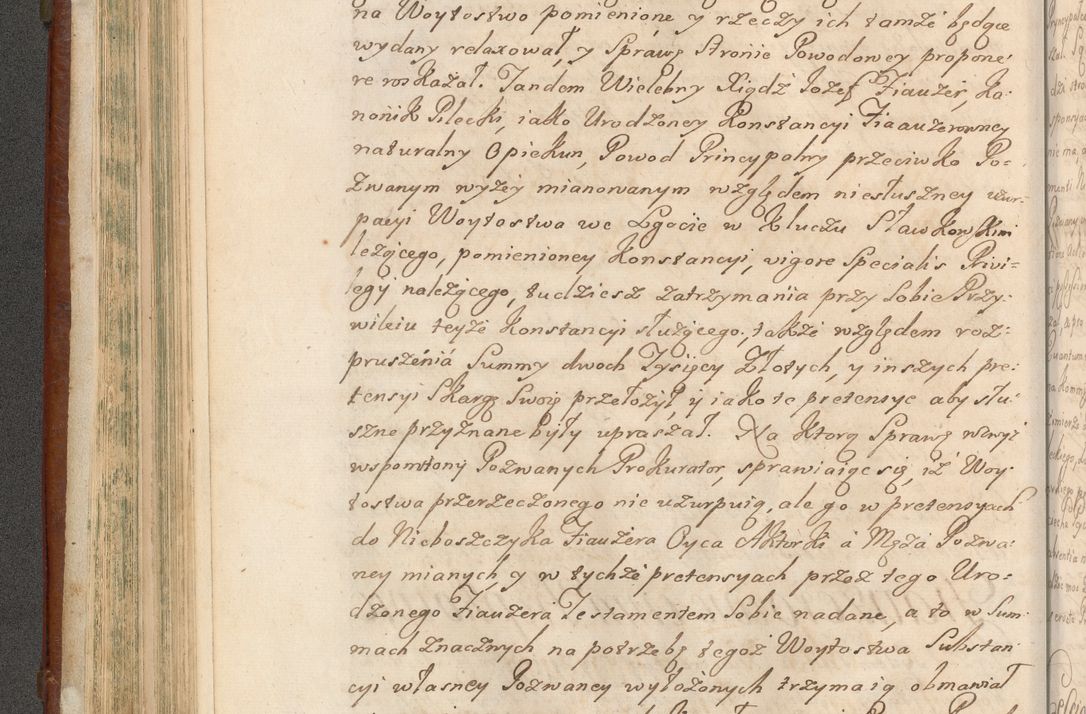 na Woytostwo pomienione y rzeczy ich tamże będące
wydany relaxował, y Sprawę Stronie Powodowey propone=
re roskazał. Tandem Wielebny Xiądz Iozef Fiauzer, Ka=
nonik Pilecki, iako Urodzoney Konstancyi Fiaauzerowney
naturalny Opiekun, Powod Pryncypalny przeciwko Po=
zwanym wyżey mianowanym względem niesłuszney uzur=
pacyi Woytostwa we Lgocie w Kluczu Sławkowskim
leżącego, pomienioney Konstancyi, vigore Specialis Privi=
legy należącego, tudziesz zatrzymania przy Sobie Przy=
wileiu teyże Konstancyi służącego, także względem roz=
pruszenia Summy dwoch Tysięcy Złotych, y inszych pre=
tensyi Skargę Swoię przełożył, y iako te pretensye aby słu=
szne przyznane były upraszał. Na Ktorą Sprawę wzwyż
wspomniony Pozwanych Prokurator, sprawiaiąc się, iż Woy=
tostwa przerzeczonego nie uzurpuią, ale go w pretensyach
do Nieboszczyka Fiauzera Oyca Aktorki a Męża Pozwa=
ney mianych y w tychże pretensyach przez tego Uro=
dzonego Fiauzera Testamentem Sobie nadane, a to w Sum=
mach znacznych na potrzebę tegoż Woytostwa Substan=
cyi własney Pozwaney wyłożonych trzymaią obmawiał